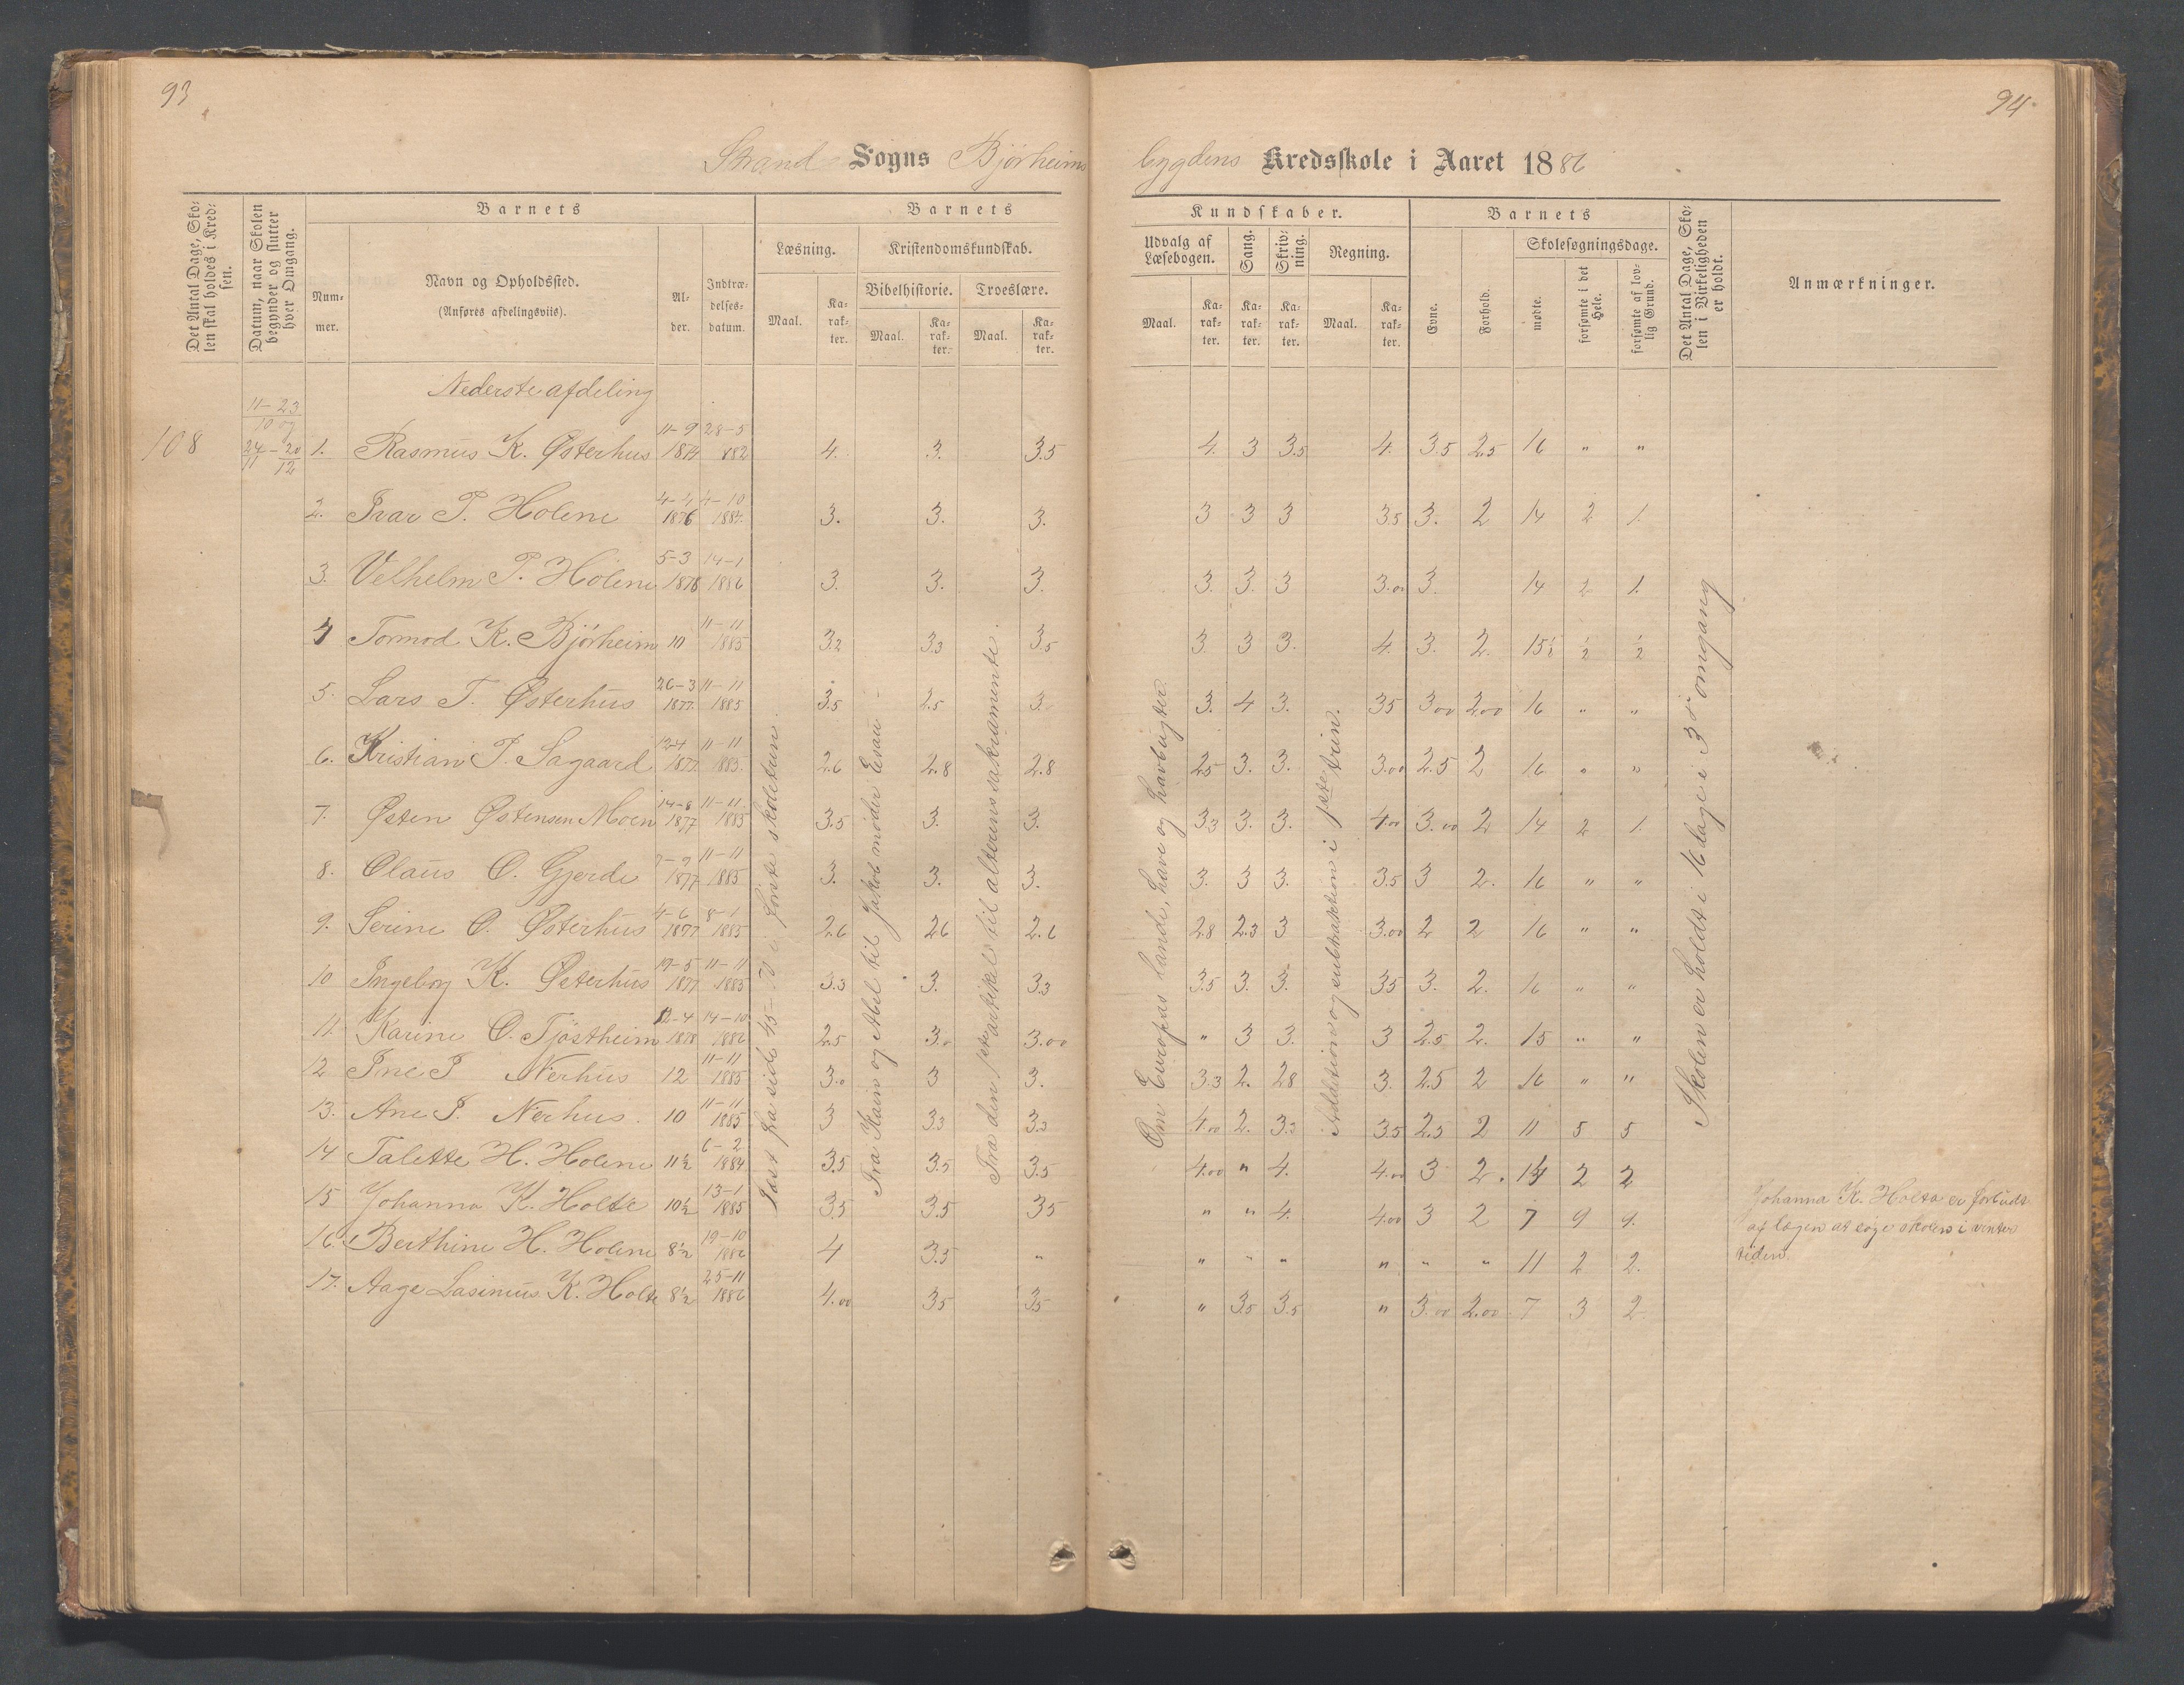 93
94
Strand Sogns Bjørheims
bygdens Kredsskole i Aaret 1886
Det Antal Dage, Skolen skal holdes i Kredsen.
Datum, naar Skolen begynder og slutter hver Omgang.
Barnets
Nummer.
Navn og Opholdssted.
(Anføres afdelingsviis).
Alder.
Indtrædelsesdatum.
Barnets
Læsning.
Maal.
Karakter.
Kristendomskundskab.
Bibelhistorie.
Maal.
Karakter.
Troeslære.
Maal.
Karakter.
Kundskaber.
Udvalg af Læsebogen.
Maal.
Karakter.
Sang.
Karakter.
Skrivning.
Karakter.
Regning.
Maal.
Karakter.
Barnets
Evne.
Forhold.
Skolesøgningsdage.
mødte.
forsømte i det Hele.
forsømte af lovlig Grund.
Det Antal Dage, Skolen i Virkeligheden er holdt.
Anmærkninger.
Nederste afdeling
108 11-23/10 og 24/11-20/12
1. Rasmus K. Østerhus 11-9 1874 28-5 882 4. 3. 3.5 4. 3 3.5 4. 3.5 2.5 16 " "
2. Ivar P. Holene 4-4 1876 4-10 1884. 3. 3. 3. 3 3 3 3.5 3. 2 14 2 1.
3. Velhelm P. Holene 5-3 1878 14-1 1886 3. 3. 3. 3. 3. 3 3.00 3. 14 2 1.
4 Tormod K. Bjørheim 10 11-11 1885 3.2 3.3 3.5 3. 3 3. 4. 3. 2. 15½ ½ ½
5. Lars T. Østerhus 26-3 1877. 11-11 1885 3.5 2.5 3. 3. 4 3. 3.5 3.00 2.00 16 " "
6. Kristian P. Sagaard 12-4 1877. 11-11 1885. 2.6 2.8 2.8 2.5 3. 3. 3.00 2.5 2 16 " "
7. Østen Østensen Moen 14-8 1877 11-11. 1885 3.5 3. 3. 3.3 3. 3. 4.00 3.00 2 14 2 1.
8. Olaus O. Gjerde 7-9 1877 11-11 1885 3. 3. 3. 3. 3 3. 3.5 3 2. 16 " "
9. Serine O. Østerhus 4-6 1877 8-1 1885 2.6 2.6 2.6 2.8 2.3 3 3.00 2 2 16 " "
10 Ingeborg K. Østerhus 19-5 1877 11-11 1885 3.3 3. 3.3 3.5 3. 3. 3.5 3. 2. 16 " "
11. Karine O. Tjøstheim 12-4 1878 14-10 1886 2.5 3.0 3.00 " 3 3. 3 2.5 2. 15 " "
12 Ine P Nerhus 12 11-11 1885 3.0 3 3. 3.3 2. 2.8 3. 2.5 2 16 " "
13. Ane P. Nerhus. 10 11-11 1885 3 3.3 3.3 4.00 2. 3.3 3.5 2.5 2 11 5 5
14 Talette H. Holene 11½ 6-2 1884 3.5 3.5 3.5 4.00 " 4. 4.00 3 2. 14 2 2
15 Johanna K. Holte 10½ 13-1 1885 3.5 3.5 3.5 " " 4. 4.00 3 2 7 9 9.
16. Berthine H. Holene 8½ 19-10 1886 4 3.5 " " " " " " " 11 2 2.
17. Aage Lasinius K. Holte 8½ 25-11 1886 4.00 3.5 3.5 " 3.5 3.5 " 3.00 2.00 7 3 2
Læst fra side 45-70 i første skoletrin.
Fra Kain og Abel til Jakob møder Esau
Fra den 1ste artikel til alterens sakramente.
Om Europas lande, have og havbugter.
Addition og subtraktion i 1ste trin.
Skolen er holdt i 16 dage i 3die omgang
Johanna K. Holte er forbudt
af lægen at søge skolen i vinter
tiden.